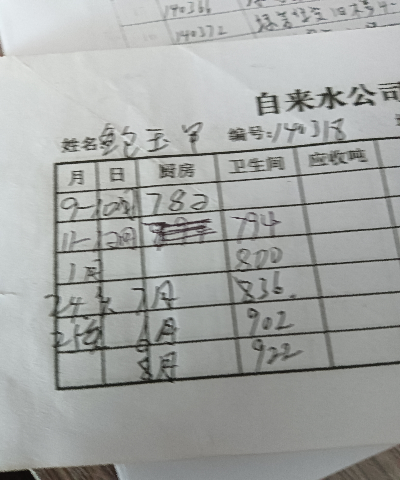 140366
140372
自来水公司
姓名 鲍玉平 编号:140318
月 日 厨房 卫生间 应收吨
9-10月 782
11-12月 794
1月 800
24年 7月 836.
6月 902
8月 922